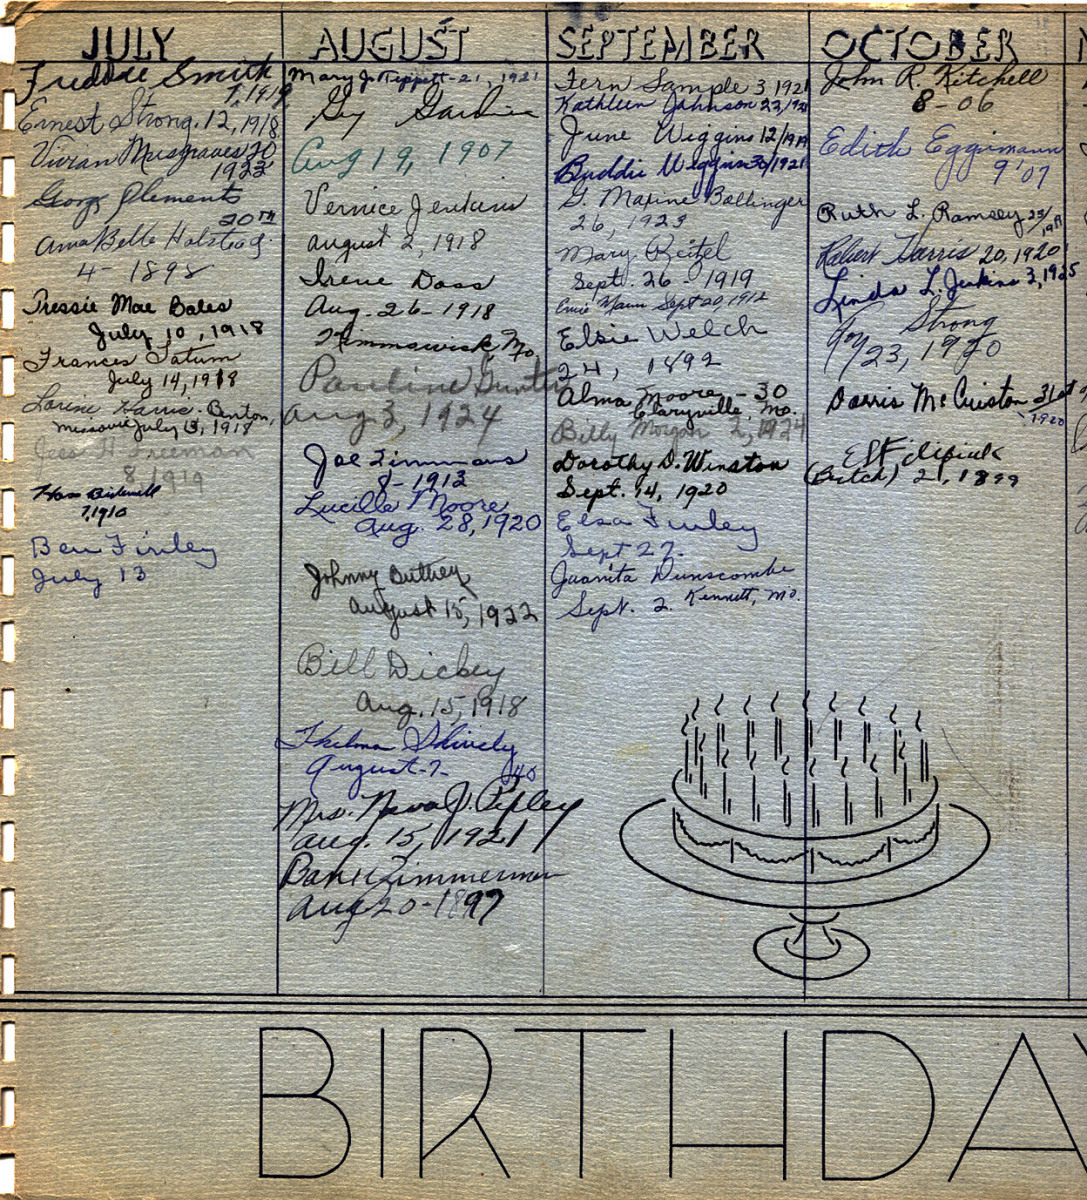 JULY
Freddie Smith
7, 1918
Ernest Strong. 12, 1918
Vivian Musgraves 20
1923
George Clements
20TH
Anna Belle Halstead.
4 - 1898
Tressie Mae Bales
July 10, 1918
Frances Tatum
July 14, 1918
Lorine Harris - Benton,
Missouri July 13, 1918
Jess H. Freeman
8, 1919
7, 1910
Ben Finley
July 13
AUGUST
Mary J. Tippett - 21, 1921
Guy
Aug 19, 1907
Vernice Jenkins
August 2, 1918
Irene Doss
Aug. 26 - 1918
Kimmswick, Mo
Pauline Gunter
Aug 3, 1924
Joe Timmons
8 - 1912
Lucille Moore
Aug. 28, 1920
Johnny Buttrey
August 15, 1922
Bill Dickey
Aug. 15, 1918
Thelma Shively
August - 7 -
Mrs. Neva J. Pipley
Aug. 15, 1921
Zimmerman
Aug 20 - 1897
SEPTEMBER
Fern Sample 3, 1921
Kathleen Johnson 23,
June Wiggins 12/1919
Buddie Wiggins 30/1921
G. Maxine Bollinger
26, 1923
Mary Reitzel
Sept. 26 - 1919
Mann Sept 20, 1912
Elsie Welch
24, 1892
Alma Moore - 30
Claryville, Mo.
Billy Morgan 2, 1924
Dorothy D. Winston
Sept. 14, 1920
Elsa Finley
Sept 27.
Juanita Dunscombe
Sept. 2. Kennett, Mo.
OCTOBER
John R. Kitchell
8 - 06
Edith Eggimann
9 '07
Ruth L. Ramsey 23/
Robert Harris 20, 1920
Linda L. Jenkins 3, 1925
Strong
23, 1920
Dorris McCuiston 31st
1920
(Butch) 21, 1899
BIRTHDA